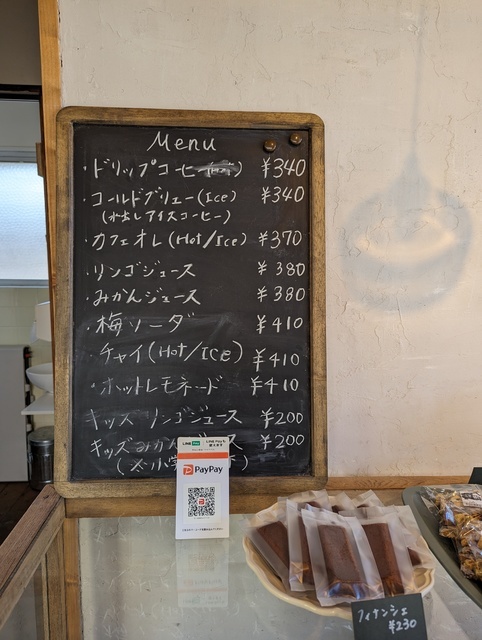 Menu
・ドリップコーヒー(Hot) ¥340
・コールドブリュー(Ice) ¥340
(水出しアイスコーヒー)
・カフェオレ(Hot/Ice) ¥370
・リンゴジュース ¥380
・みかんジュース ¥380
・梅ソーダ ¥410
・チャイ(Hot/ICE) ¥410
・ホットレモネード ¥410
キッズ リンゴジュース ¥200
キッズみかん ス ¥200
LINE Pay
PayPay
フィナンシェ
¥230